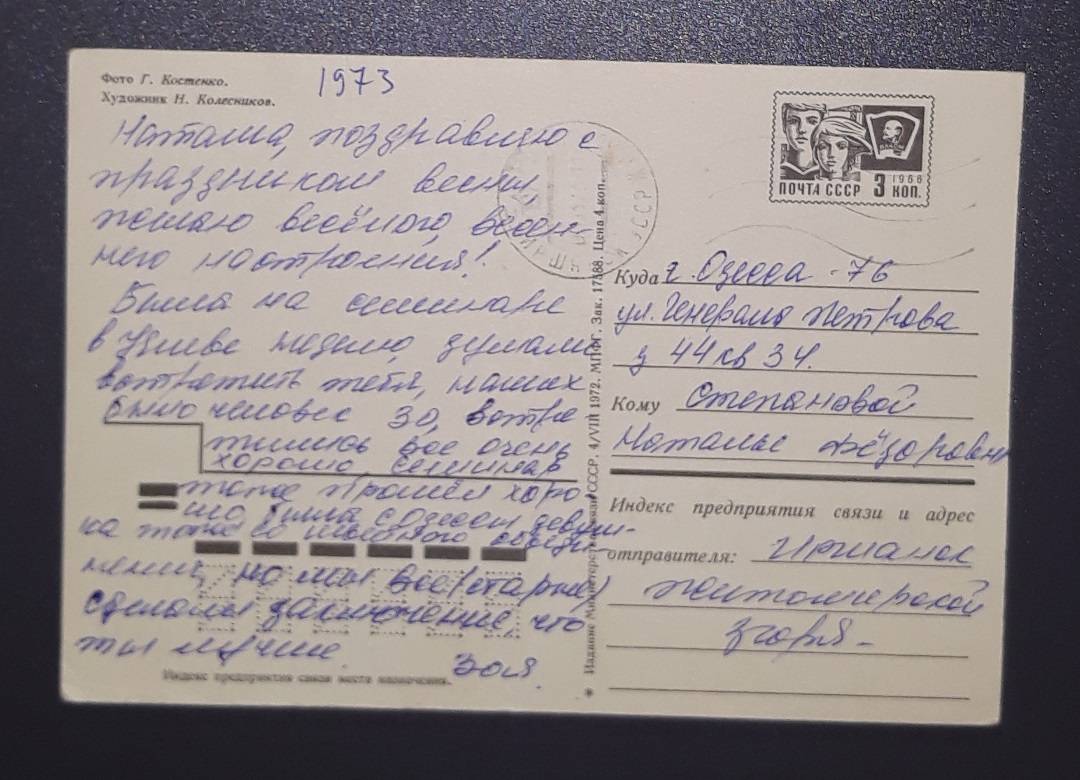 Фото Г. Костенко.
Художник Н. Колесников.
1973
Наташа, поздравляю с
праздником весны,
желаю весёлого, весен-
него настроения!
Была на семинаре
в Киеве неделю, думала
встретить тебя, наших
было человек 30, встре-
тились все очень
хорошо, семинар
тоже прошёл хоро-
шо. Была с Одессы девуш-
ка тоже с
нения, но мы все (старые)
сделали заключение, что
ты лучше. Зоя.
Индекс предприятия связи места назначения.
* Издание Министерства связи СССР. 4/VIII 1972. МПФГ. Зак. 17588. Цена 4 коп.
УССР
ПОЧТА СССР 3 КОП.
1966
ВЛКСМ
Куда г. Одесса - 76
ул. Генерала Петрова
д 44 кв 34.
Кому Степановой
Наталье Фёдоровне
Индекс предприятия связи и адрес
отправителя: Иршанск
Житомирской
Згоря-